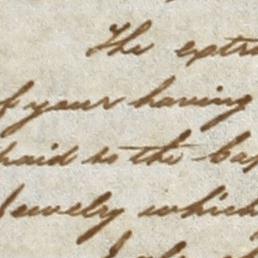 The extra
of your having
paid to the Cap
Jewelry which